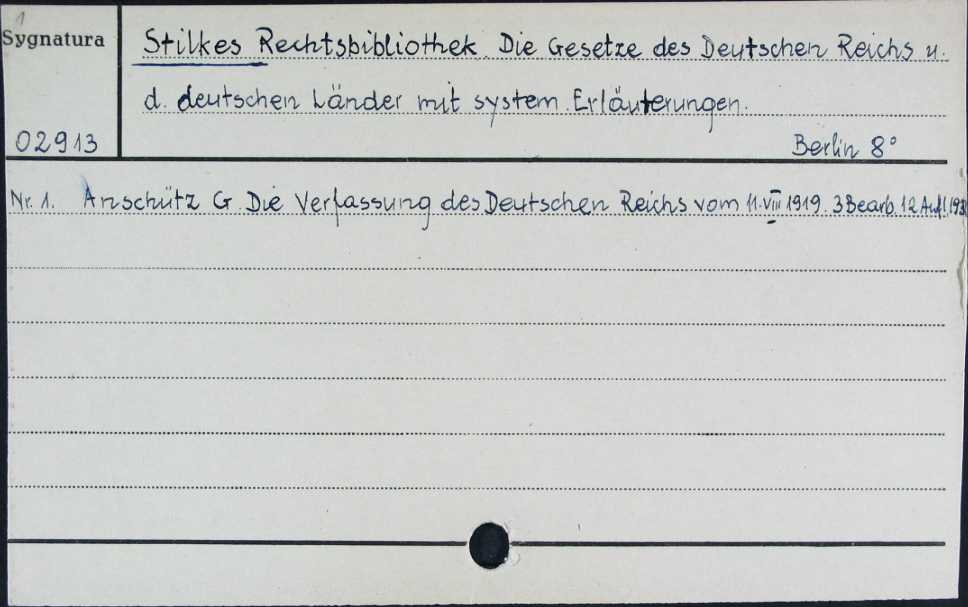 1
Sygnatura
Stilkes Rechtsbibliothek. Die Gesetze des Deutschen Reichs u.
d. deutschen Länder mit system. Erläuterungen.
02913
Berlin 8°
Nr. 1. Anschütz G. Die Verfassung des Deutschen Reichs vom 11.VIII 1919. 3 Bearb. 12 Aufl.